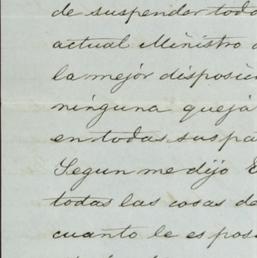 de suspender toda
actual Ministro
la mejór disposici
ninguna quejá
en todas sus pa
Segun me dijo
todas las cosas de
cuanto le es pos